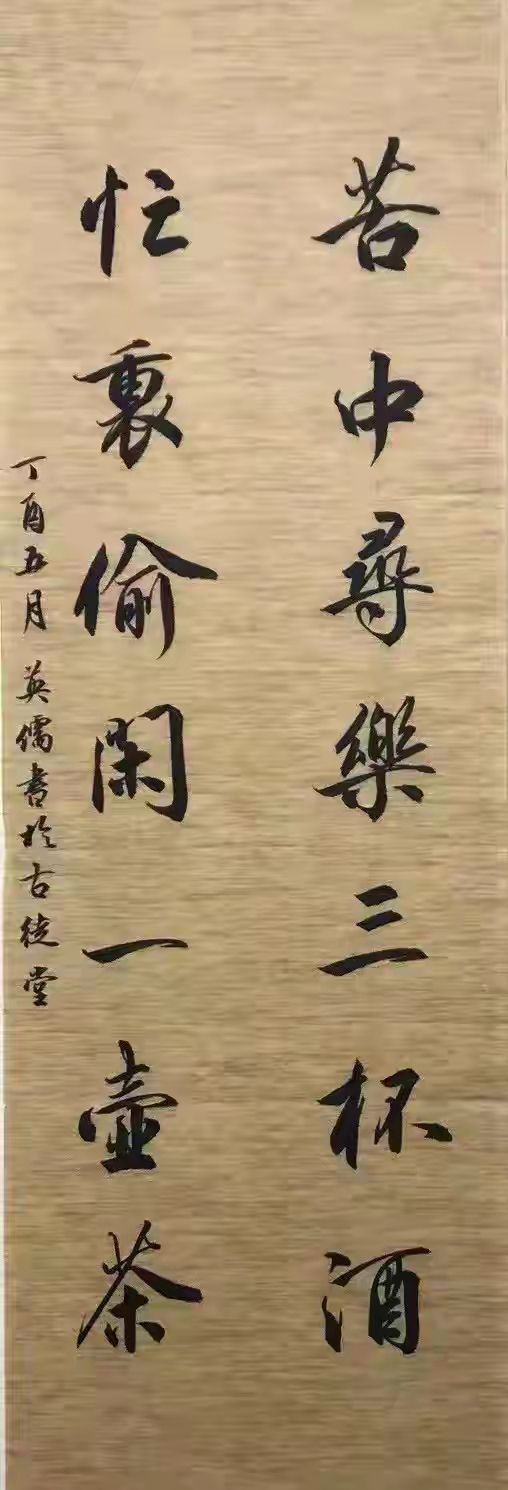 苦中尋樂三杯酒
忙裏偷閑一壺茶
丁酉五月英儒書於古徒堂